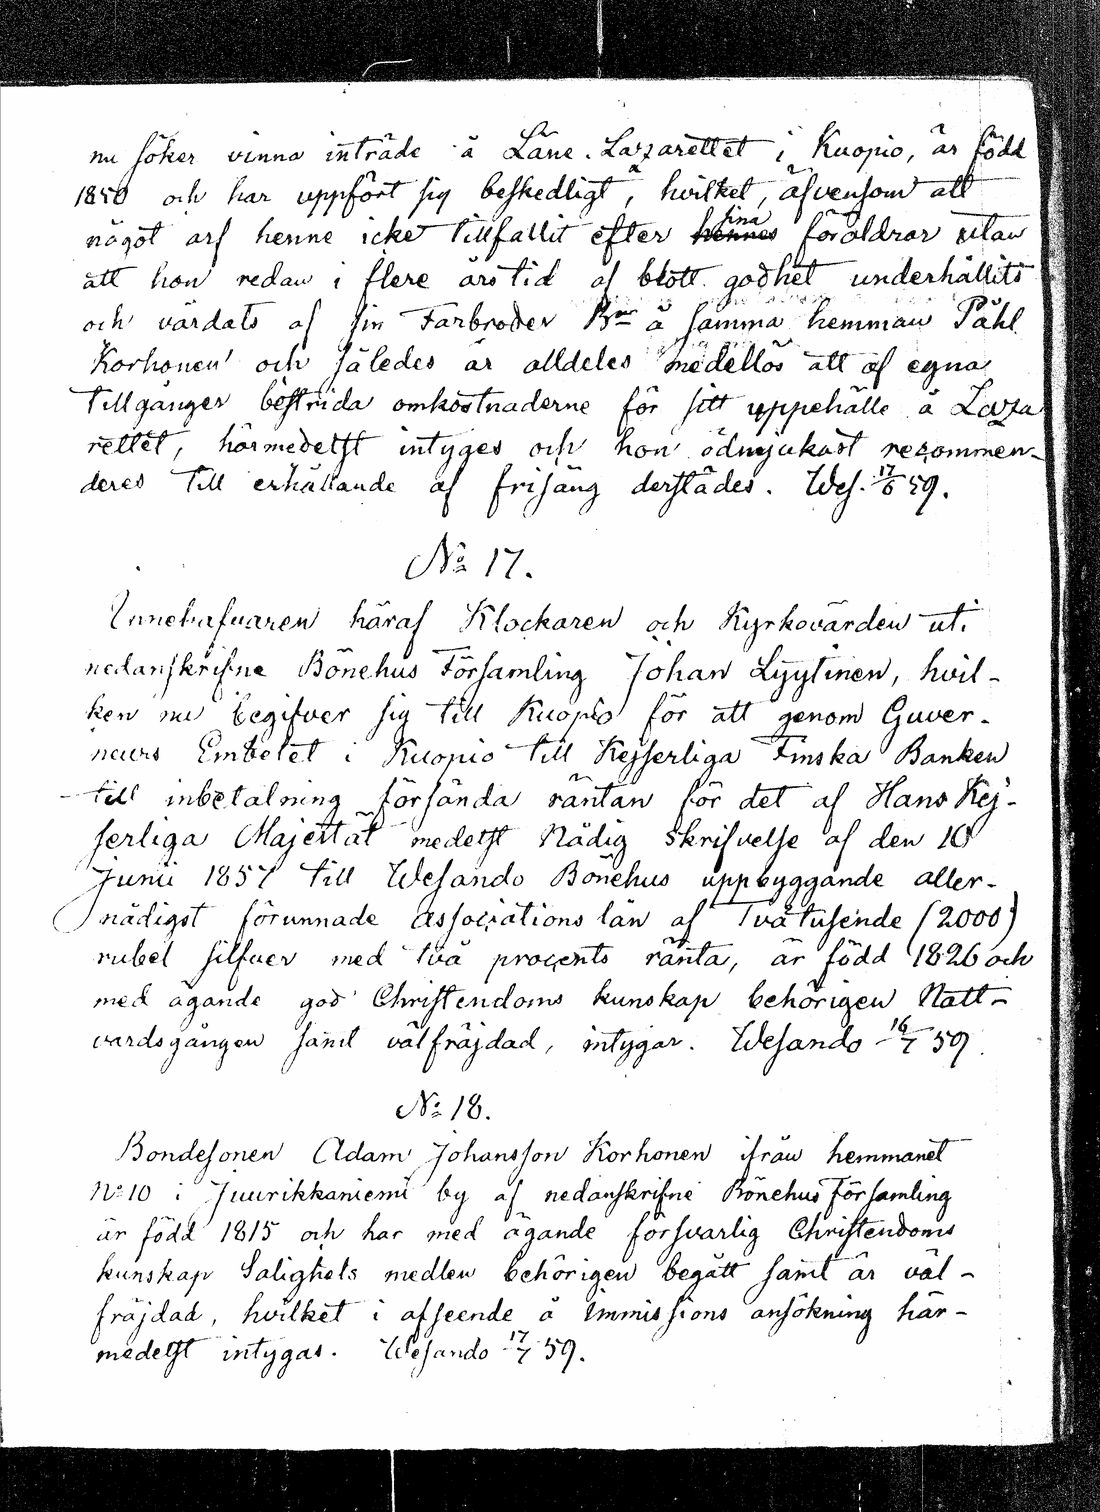 nu söker vinna inträde å Läne-Lazarettet i Kuopio, är född
1850 och har uppfört sig beskedligt, hvilket, äfvensom att
något arf henne icke tillfallit efter hennes sina föräldrar utan
att hon redan i flere års tid af blott godhet underhållits
och vårdats af sin Farbroder Bnr å samma hemman Påhl
Korhonen och således är alldeles medellös att af egna
tillgånger bestrida omkostnaderne för sitt uppehälle å Laza
rettet, härmedelst intyges och hon ödmjukast recommen-
deres till erhållande af frisäng derstädes. Wes. 17/6 59.
No 17.
Innehafvaren häraf Klockaren och Kyrkovärden uti
nedanskrifne Bönehus Församling Johan Lyytinen, hvil-
ken nu begifver sig till Kuopio för att genom Guver-
neurs Embetet i Kuopio till Kejserliga Finska Banken
till inbetalning försända räntan för det af Hans Kej-
serliga Majestät medelst Nådig skrifvelse af den 10
Junii 1857 till Wesando Bönehus uppbyggande aller-
nådigst förunnade associations lån af Tvåtusende (2000)
rubel silfver med två procents ränta, är född 1826 och
med ägande god Christendoms kunskap behörigen Natt-
vardsgången samt välfräjdad, intygar. Wesando 16/7 59.
No 18.
Bondesonen Adam Johansson Korhonen ifrån hemmanet
No 10 i Juurikkaniemi by af nedanskrifne Bönehus Församling
är född 1815 och har med ägande försvarlig Christendoms
kunskap Salighets medlen behörigen begått samt är väl-
fräjdad, hvilket i afseende å immissions ansökning här-
medelst intygas. Wesando 17/7 59.